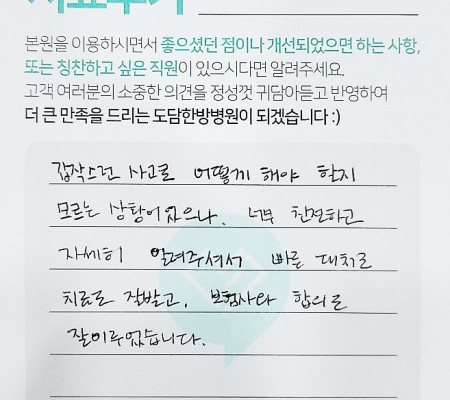 본원을 이용하시면서 좋으셨던 점이나 개선되었으면 하는 사항,
또는 칭찬하고 싶은 직원이 있으시다면 알려주세요.
고객 여러분의 소중한 의견을 정성껏 귀담아듣고 반영하여
더 큰 만족을 드리는 도담한방병원이 되겠습니다 :)
갑작스런 사고로 어떻게 해야 할지
모르는 상황이었으나, 너무 친절하고
자세히 알려주셔서 빠른 대처로
치료로 잘받고, 보험사와 합의로
잘이루었습니다.